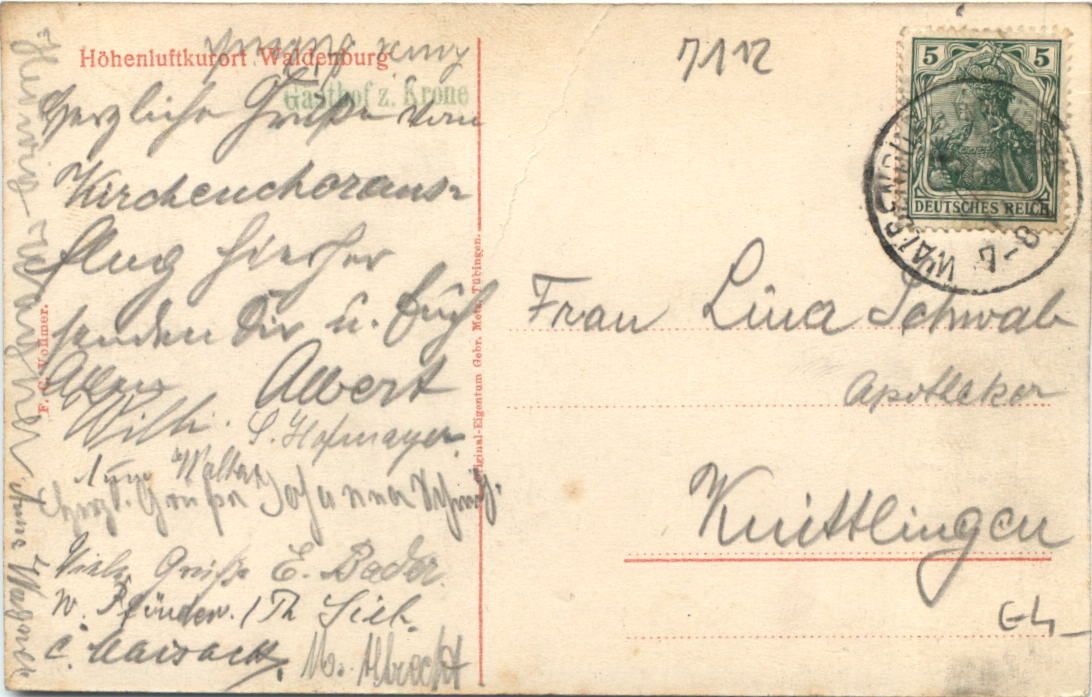 Höhenluftkurort Waldenburg
Gasthof z. Krone
Herzliche Grüße vom
Kirchenchoraus-
flug hierher
senden Dir u. Euch
Allen Albert
Wilh. S. Hofmayer
Walter
Herzl. Grüße Johanna
Viele Grüße E. Bader.
W. Pfründer. / Th. Sieb.
C. Maisack. M. Albrecht
Hedwig Wagner
F. C. Vollmer.
Original-Eigentum Gebr. Metz, Tübingen.
7112
5 5
DEUTSCHES REICH
WALDENBURG
Frau Lina Schwab
Apotheker
Knittlingen